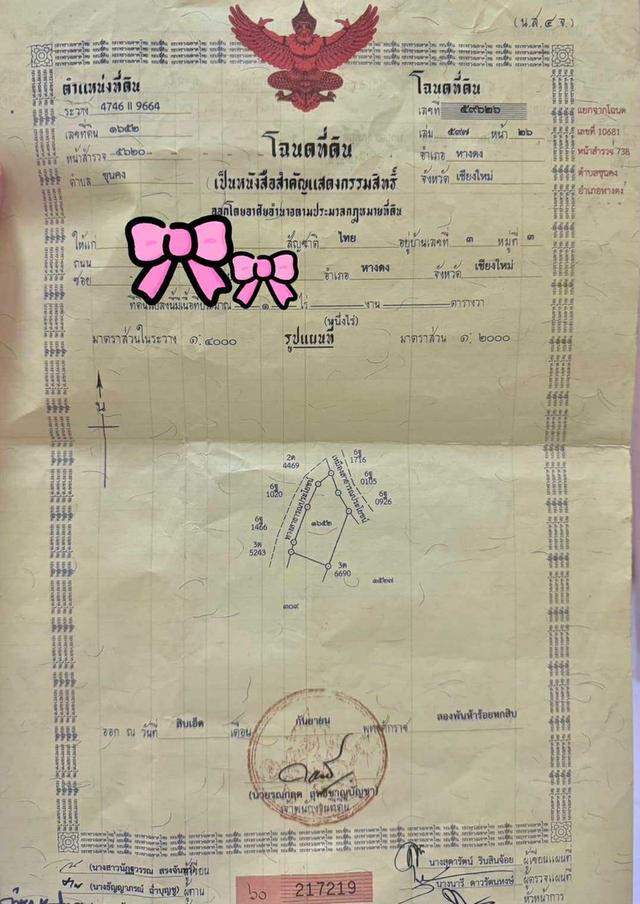 (น.ส.๔ จ.)
ตำแหน่งที่ดิน
ระวาง 4746 II 9664
เลขที่ดิน ๑๖๕๒
หน้าสำรวจ ๕๖๒๐
ตำบล ขุนคง
โฉนดที่ดิน
เลขที่ ๕๙๖๒๖
เล่ม ๕๙๗ หน้า ๒๖
อำเภอ หางดง
จังหวัด เชียงใหม่
แยกจากโฉนด
เลขที่ 10681
หน้าสำรวจ 738
ตำบลขุนคง
อำเภอหางดง
โฉนดที่ดิน
เป็นหนังสือสำคัญแสดงกรรมสิทธิ์
ออกโดยอาศัยอำนาจตามประมวลกฎหมายที่ดิน
ให้แก่ สัญชาติ ไทย อยู่บ้านเลขที่ ๓ หมู่ที่ ๓
ถนน
ซอย อำเภอ หางดง จังหวัด เชียงใหม่
ที่ดินแปลงนี้มีเนื้อที่ประมาณ ๑ ไร่ - งาน - ตารางวา
(หนึ่งไร่)
มาตราส่วนในระวาง ๑:๔๐๐๐ รูปแผนที่ มาตราส่วน ๑:๒๐๐๐
น
2ต
4469
6ฐ
1716
6ฐ
0105
6ฐ
0926
6ฐ
1020
6ฐ
1466
3ต
5243
ทางสาธารณประโยชน์
เหมืองสาธารณประโยชน์
๑๖๕๒
3ต
6690
๑๕๒๗
๓๐๙
ออก ณ วันที่ สิบเอ็ด เดือน กันยายน พุทธศักราช สองพันห้าร้อยหกสิบ
เจ้าพนักงานที่ดิน
(นางสาวนัฐวรรณ ) เขียน
(นางธัญญาภรณ์ ) ผู้ทาน
๖๐ 217219
นางสุดารัตน์ ริบสินจ้อย ผู้เขียนแผนที่
นางนารี ดาวรัตนหงษ์ ผู้ตรวจแผนที่
หัวหน้าการ